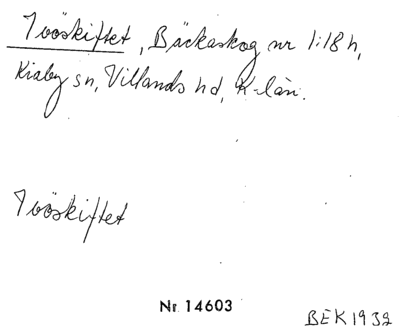 Ivöskiftet, Bäckaskog nr 1:18 h,
Kiaby sn, Villands hd, K-län.
Ivöskiftet
Nr 14603
BEK 1932